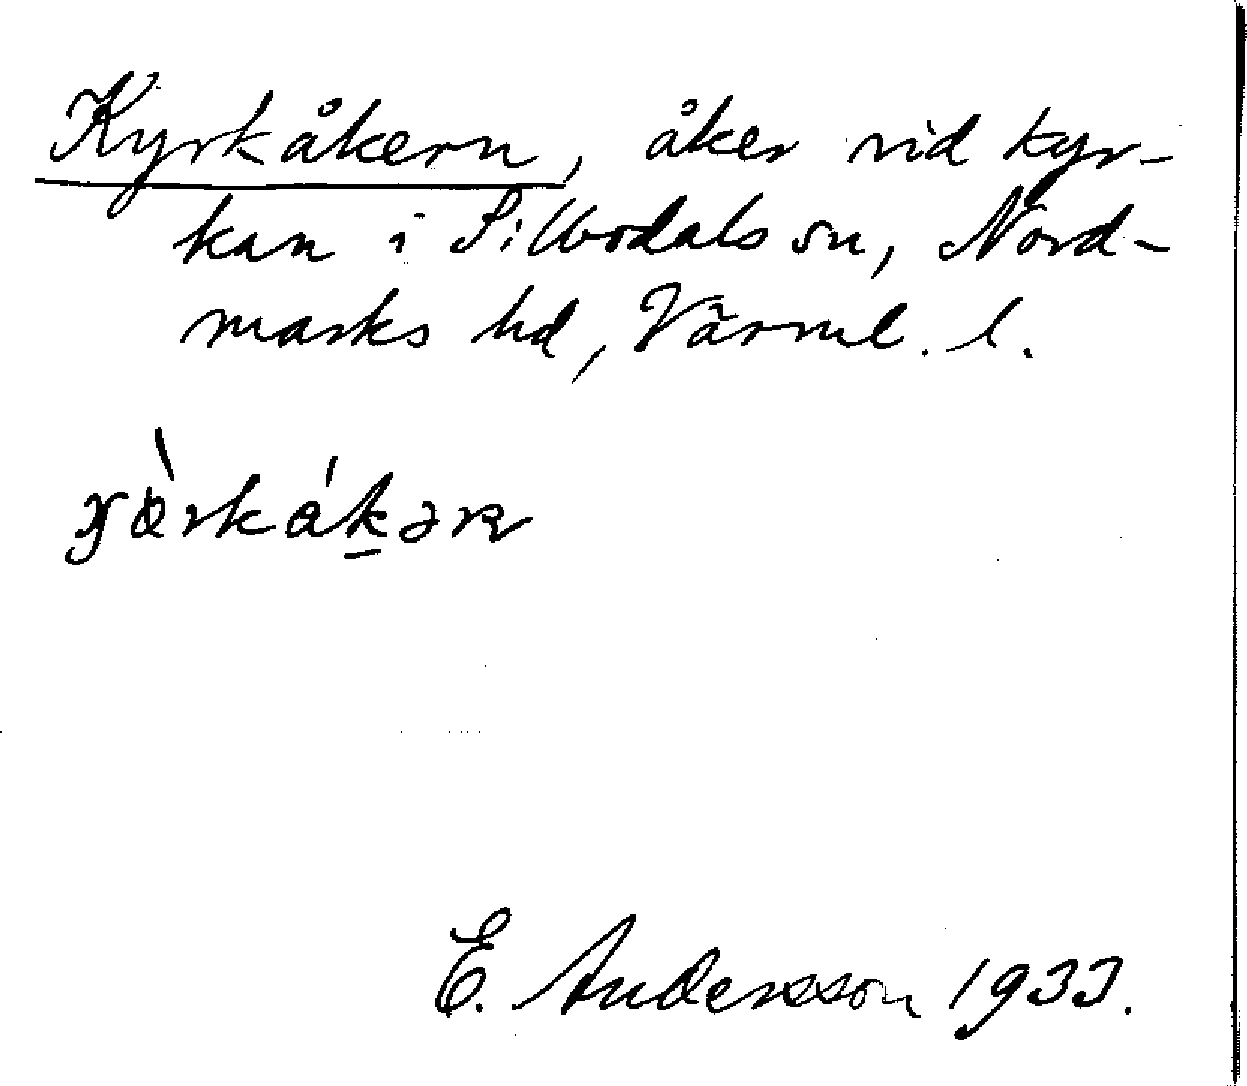 Kyrkåkern, åker vid kyr-
kan i Sillbodals sn, Nord-
marks hd, Värml. l.
E. Andersson 1933.